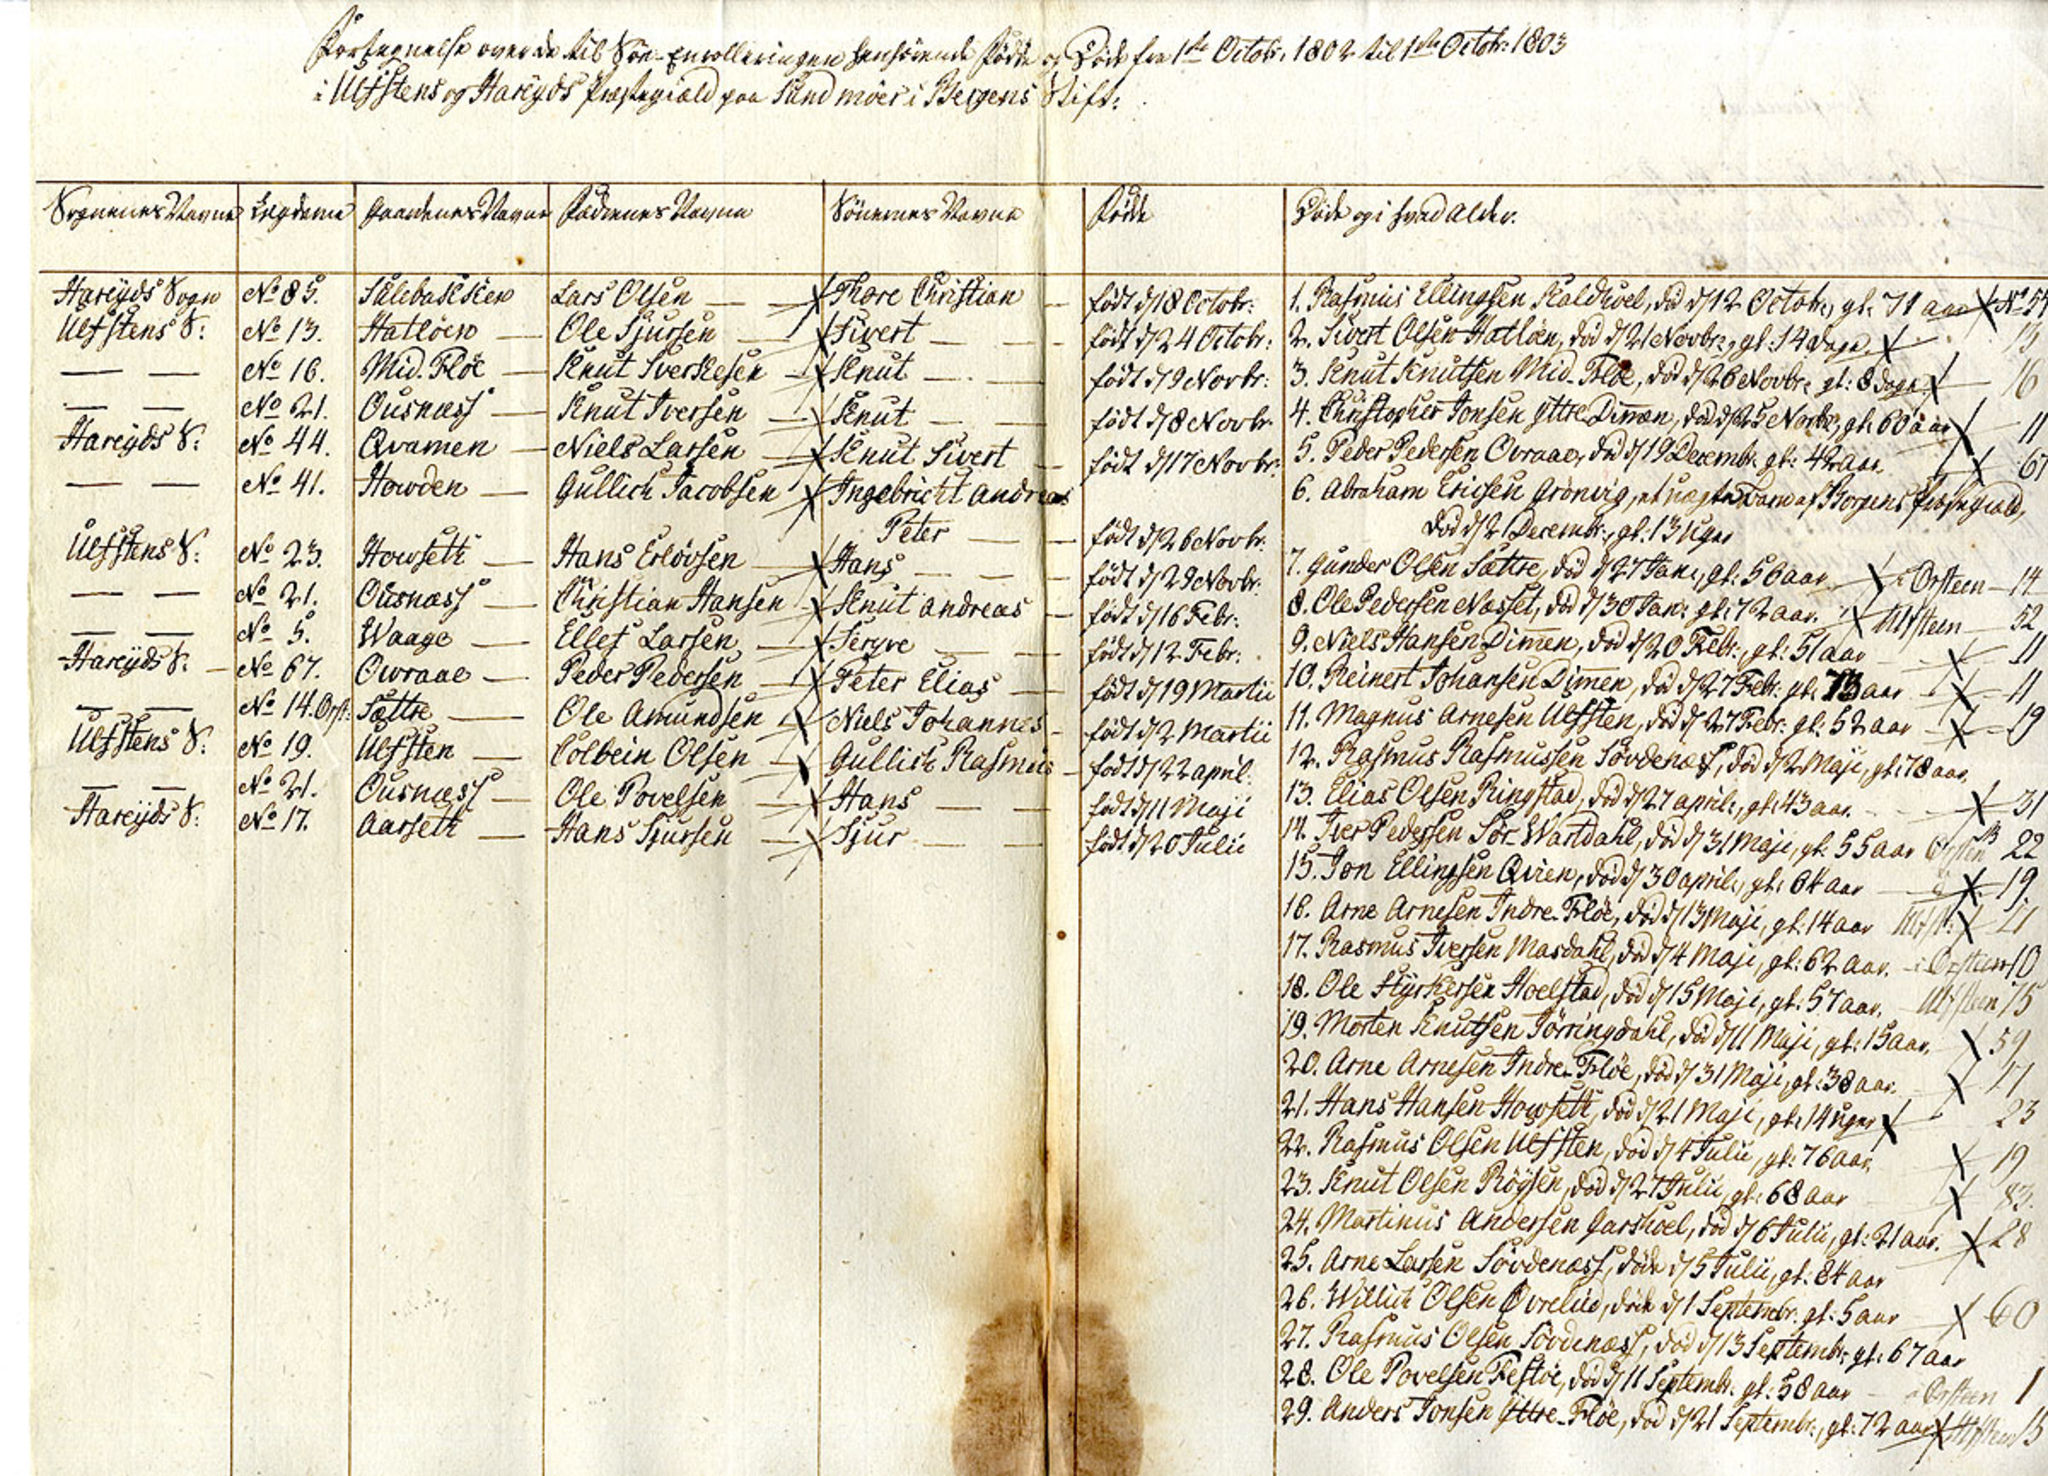 Fortegnelse over de til Söe-Enrolleringen henhörende Födde og Döde fra 1ste Octobr: 1802 til 1ste Octobr: 1803
i Ulfstens og Hareyds Præstegiæld paa Sundmöer i Bergens Stift:
Sognenes Navne Legderne Gaardenes Navne Fædrenes Navne Sönernes Navne Födte Döde og i hvad Alder.
Hareyds Sogn No 85. Lars Olsen Tore Christian födt d 18 Octobr:
Ulfstens S: No 13. Hatlöen Ole Sjursen Sivert födt d 24 Octobr:
— — No 16. Mid-Flöe Knut Sverkesen Knut födt d 9 Novbr:
— — No 21. Ousnæss Knut Iversen Knut födt d 8 Novbr:
Hareyds S: No 44. Qvamen Niels Larsen Knut Sivert födt d 17 Novbr:
— — No 41. Howden Gullich Jacobsen Ingebricht Andreas
Peter födt d 26 Novbr:
Ulfstens S: No 23. Howseth Hans Erlövsen Hans födt d 29 Novbr:
— — No 21. Ousnæss Christian Hansen Knut Andreas födt d 16 Febr:
— — No 5. Waage Ellef Larsen födt d 12 Febr:
Hareyds S: No 67. Owraae Peder Pedersen Peter Elias födt d 19 Martii
— — No 14. Orst: Sættre Ole Amundsen Niels Johannes födt d 2 Martii
Ulfstens S: No 19. Ulfsten Colbein Olsen Gullich Rasmus födt d 22 April:
— — No 21. Ousnæss Ole Povelsen Hans födt d 11 Maji
Hareyds S: No 17. Aarseth Hans Sjursen Sjur födt d 20 Julii
1. Rasmus Ellingsen Kaldhoel, död d 12 Octobr:, gl: 71 aar No 54
2. Sivert Olsen Hatlöen, död d 21 Novbr:, gl: 14 dage. 13
3. Knut Knutsen Mid-Flöe, död d 26 Novbr: gl: 8 dage 16
4. Christopher Jonsen Yttre Dimen, död d 25 Novbr, gl: 60 aar 11
5. Peder Pedersen Owraae, död d 19 Decembr: gl: 42 aar. 67
6. Abraham Ericsen Grönvig, et uægte Barn af Borgens Præstegiæld,
död d 21 Decembr:, gl: 13 uger
7. Gunder Olsen Sættre, död d 27 Jan:, gl: 56 aar i Örsteen 14
8. Ole Pedersen Næsset, död d 30 Jan: gl: 72 aar. Ulfsteen 52
9. Niels Hansen Dimen, död d 20 Febr:, gl: 51 aar 11
10. Reinert Johansen Dimen, död d 27 Febr: gl: 73 aar 11
11. Magnus Arnesen Ulfsten, död d 27 Febr: gl: 52 aar 19
12. Rasmus Rasmussen Sövdenæs, död d 2 Maji, gl: 78 aar.
13. Elias Olsen Ringstad, död d 27 April:, gl: 43 aar. 31
14. Iver Pedersen Sör-Wartdahl, död d 31 Maji, gl: 55 aar Örsten 22
15. Jon Ellingsen Qvien, död d 30 April:, gl: 64 aar 19
16. Arne Arnesen Indre-Flöe, död d 13 Maji, gl: 14 aar Ulfst:
17. Rasmus Iversen Masdahl, död d 4 Maji, gl: 62 aar. i Örsteen 10
18. Ole Styrkersen Hoelstad, död d 15 Maji, gl: 57 aar. Ulfsteen 75
19. Morten Knutsen Törringdahl, död d 11 Maji, gl: 15 aar. 59
20. Arne Arnesen Indre-Flöe, död d 31 Maji, gl: 38 aar. 17
21. Hans Hansen Howseth, död d 21 Maji, gl: 14 uger 23
22. Rasmus Olsen Ulfsten, död d 4 Julii, gl: 76 aar. 19
23. Knut Olsen Röysen, död d 27 Julii, gl: 68 aar 83.
24. Martinus Andersen Garshoel, död d 6 Julii, gl: 21 aar. 28
25. Arne Larsen Sövdenæss, döde d 5 Julii, gl: 84 aar
26. Willich Olsen Övrelid, döde d 1 Septembr: gl: 5 aar 60
27. Rasmus Olsen Sövdenæss, död d 13 Septembr: gl: 67 aar
28. Ole Povelsen Festöe, död d 11 Septembr: gl: 58 aar Örsteen 1
29. Anders Jonsen Yttre-Flöe, död d 21 Septembr:, gl: 72 aar Ulfsteen 15